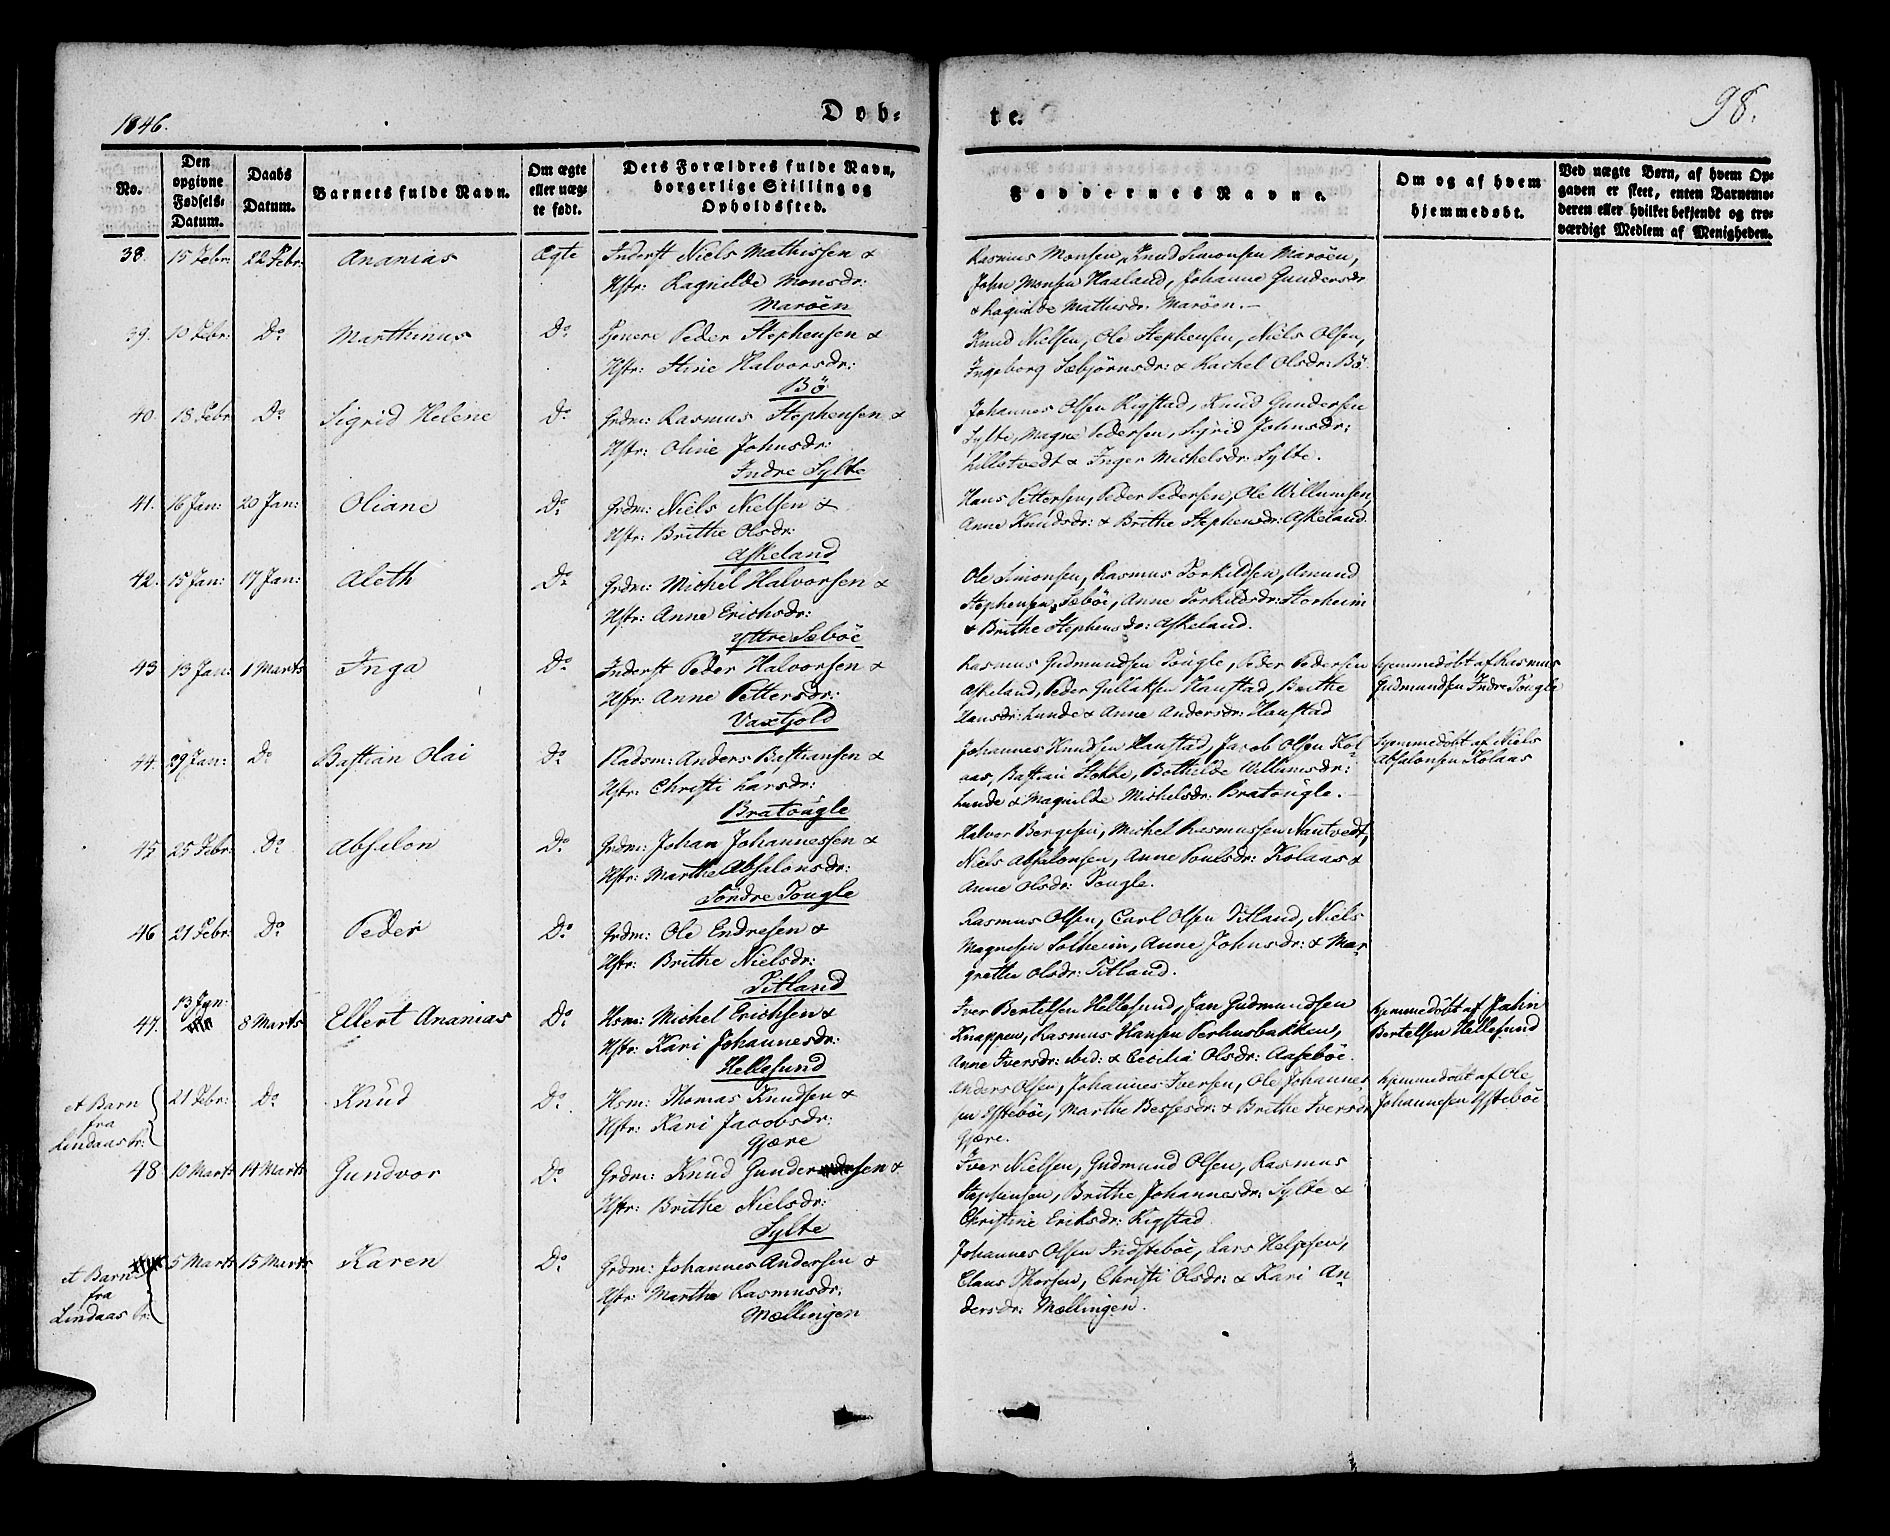 1846.
Døb-
te.
98.
No.
Den opgivne Fødsels-Datum.
Daabs Datum.
Barnets fulde Navn.
Om ægte eller uæg-te født.
Dets Forældres fulde Navn, borgerlige Stilling og Opholdssted.
Faddernes Navne.
Om og af hvem hjemmedøbt.
Ved uægte Børn, af hvem Op-
gaven er skeet, enten Barnemo-
deren eller hvilket bekjendt og tro-
værdigt Medlem af Menigheden.
38. 15 Febr: 22 Febr: Ananias Ægte Inderst Niels Mathissen &
Hstr: Ragnilde Monsdr:
Marøen
Rasmus Monsen, Knud Simonsen Marøen,
John Monsen Haaland, Johanne Gundersdr
& Ragnilde Mathisdr: Marøen.
39. 10 Febr: Do Marthinus Do Tjenere Peder Stephensen &
Hstr: Stine Halvorsdr:
Bö
Knud Nielsen, Ole Stephensen, Niels Olsen,
Ingeborg Sæbjörnsdr: & Rachel Olsdr: Bö
40. 18 Febr Do Sigrid Helene Do Grdm: Rasmus Stephensen &
Hstr: Oline Johnsdr:
Indre Sylte
Johannes Olsen Rigstad, Knud Gundersen
Sylte, Magne Pedersen, Sigrid Johnsdr:
Lillstvedt & Inger Michelsdr: Sylte.
41. 16 Jan: 20 Jan: Oliane Do Grdm: Niels Nielsen &
Hstr: Brithe Olsdr:
Askeland
Hans Pettersen, Peder Pedersen, Ole Willumsen,
Anne Knudsdr: & Brithe Stephensdr: Askeland.
42. 15 Jan: 17 Jan: Aleth Do Grdm: Michel Halvorsen &
Hstr: Anne Erichsdr:
Yttre Sæböe
Ole Simonsen, Rasmus Torkildsen, Amund
Stephensen Sæböe, Anne Torkildsdr: Storheim
& Brithe Stephensdr: Askeland.
43 13 Jan: 1 Marts Inga Do Inderst Peder Halvorsen &
Hstr: Anne Pettersdr:
Vaxtjold
Rasmus Gudmundsen Tougle, Peder Pedersen
Askeland, Peder Gullaksen Hanstad, Brithe
Hansdr: Lunde & Anne Andersdr: Hanstad
hjemmedøbt af Rasmus
Gudmundsen Indre Tougle
44. 29 Jan: Do Bastian Olai Do Pladsm: Anders Bastiansen &
Hstr: Christi Larsdr:
Bratougle
Johannes Knudsen Hanstad, Jacob Olsen Kol-
aas, Bastian Stokke, Bothilde Willumsdr:
Lunde & Magnilde Michelsdr: Bratougle.
hjemmedøbt af Niels
Absalonsen Kolaas
45 25 Febr: Do Absalon Do Grdm: Johan Johannessen &
Hstr: Marthe Absalonsdr:
Söndre Tougle
Halvor Bergesen, Michel Rasmussen Nautvedt,
Niels Absalonsen, Anne Poulsdr: Kolaas &
Anne Olsdr: Tougle.
46 21 Febr: Do Peder Do Grdm: Ole Endresen &
Hstr: Brithe Nielsdr:
Titland
Rasmus Olsen, Carl Olsen Titland, Niels
Magnesen Solheim, Anne Johnsdr: & Mar-
grethe Olsdr: Titland.
47. 13 Jan: 8 Marts Ellert Ananias Do Hsm: Michel Erichsen &
Hstr: Kari Johannesdr:
Hellesund
Iver Bertelsen Hellesund, Jan Gudmundsen
Knappen, Rasmus Hansen Verhusbakken,
Anne Iversdr: ibid: & Cecilia Olsdr: Aaseböe.
hjemmedøbt af
Bertelsen Hellesund
et Barn
fra
Lindaas Pr:
21 Febr: Do Knud Do Hsm: Thomas Knudsen &
Hstr: Kari Jacobsdr:
Gjære
Anders Olsen, Johannes Iversen, Ole Johannes-
sen Ystebøe, Marthe Bessesdr: & Brithe Iversdr
Gjære.
hjemmedøbt af Ole
Johannesen Ystebøe
48 10 Marts 14 Marts Gundvor Do Grdm: Knud Gundersen &
Hstr: Brithe Nielsdr:
Sylte
Iver Nielsen, Gudmund Olsen, Rasmus
Stephensen, Brithe Johannesdr: Sylte &
Christine Eriksdr: Rigstad.
et Barn
fra
Lindaas Pr:
5 Marts 15 Marts Karen Do Grdm: Johannes Andersen &
Hstr: Marthe Rasmusdr:
Mællingen
Johannes Olsen Indstebøe, Lars Helgesen,
Claus Thorsen, Christi Olsdr: & Kari An-
dersdr: Mællingen.